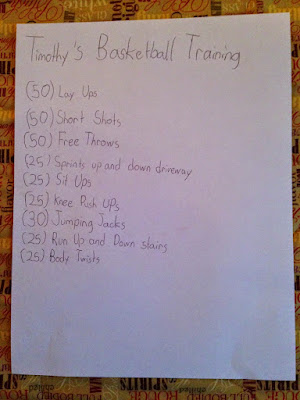 Timothy's Basketball Training
(50) Lay Ups
(50) Short Shots
(50) Free Throws
(25) Sprints up and down driveway
(25) Sit Ups
(25) Knee Push Ups
(30) Jumping Jacks
(25) Run Up and Down stairs
(25) Body Twists
SPIRITS